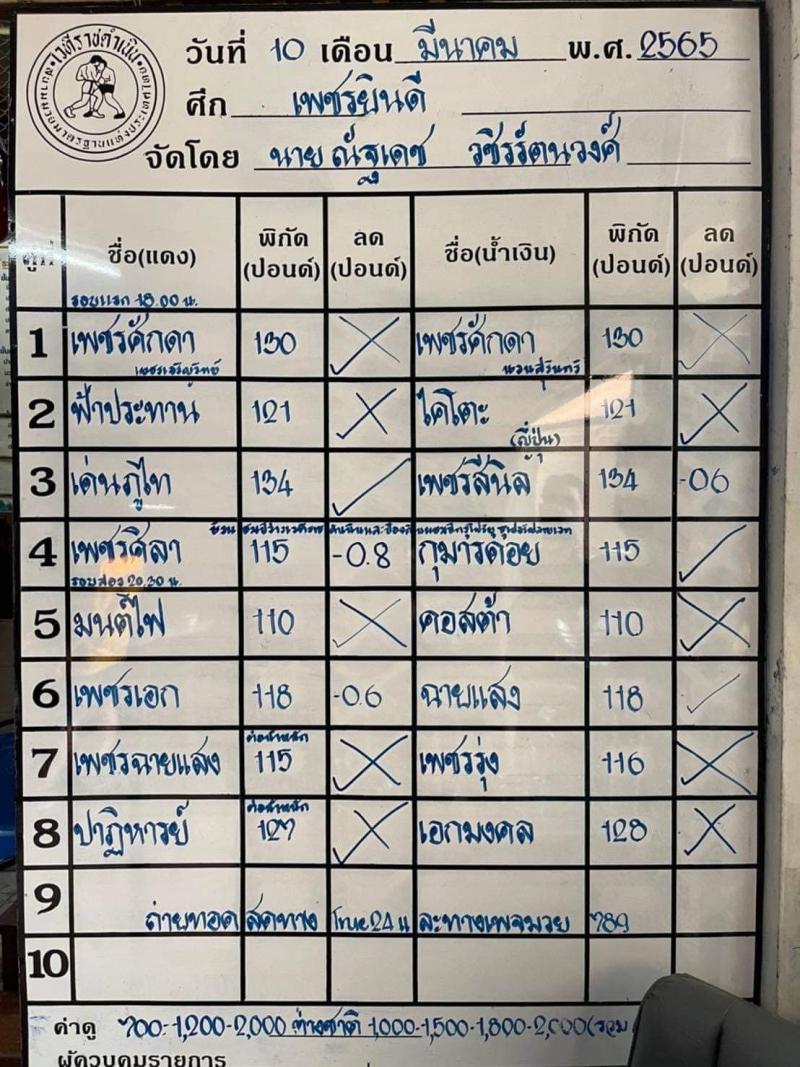 เวทีราชดำเนิน
สนามมวยมาตรฐานแห่งประเทศไทย
วันที่ 10 เดือน มีนาคม พ.ศ. 2565
ศึก เพชรยินดี
จัดโดย นาย ณัฐเดช วชิรรัตนวงศ์
คู่ที่ ชื่อ(แดง) พิกัด (ปอนด์) ลด (ปอนด์) ชื่อ(น้ำเงิน) พิกัด (ปอนด์) ลด (ปอนด์)
รอบแรก 18.00 น.
1 เพชรศักดา 130 เพชรศักดา 130
เพชรเจริญวิทย์ นวนสุรินทร์
2 ฟ้าประทาน 121 ไคโตะ 121
(ญี่ปุ่น)
3 เด่นภูไท 134 เพชรสีนิล 134 -06
4 เพชรศิลา 115 -0.8 กุมารดอย 115
รอบสอง 20.30 น.
5 มนต์ไฟ 110 คอสต้า 110
6 เพชรเอก 118 -0.6 ฉายแสง 118
ต่อน้ำหนัก
7 เพชรฉายแสง 115 เพชรรุ่ง 116
ต่อน้ำหนัก
8 ปาฏิหารย์ 127 เอกมงคล 128
9
ถ่ายทอด สดทาง True24 และทางเพจมวย 789
10
ค่าดู 700-1,200-2,000 ต่างชาติ 1,000-1,500-1,800-2,000(รวม
ผู้ควบคุมรายการ